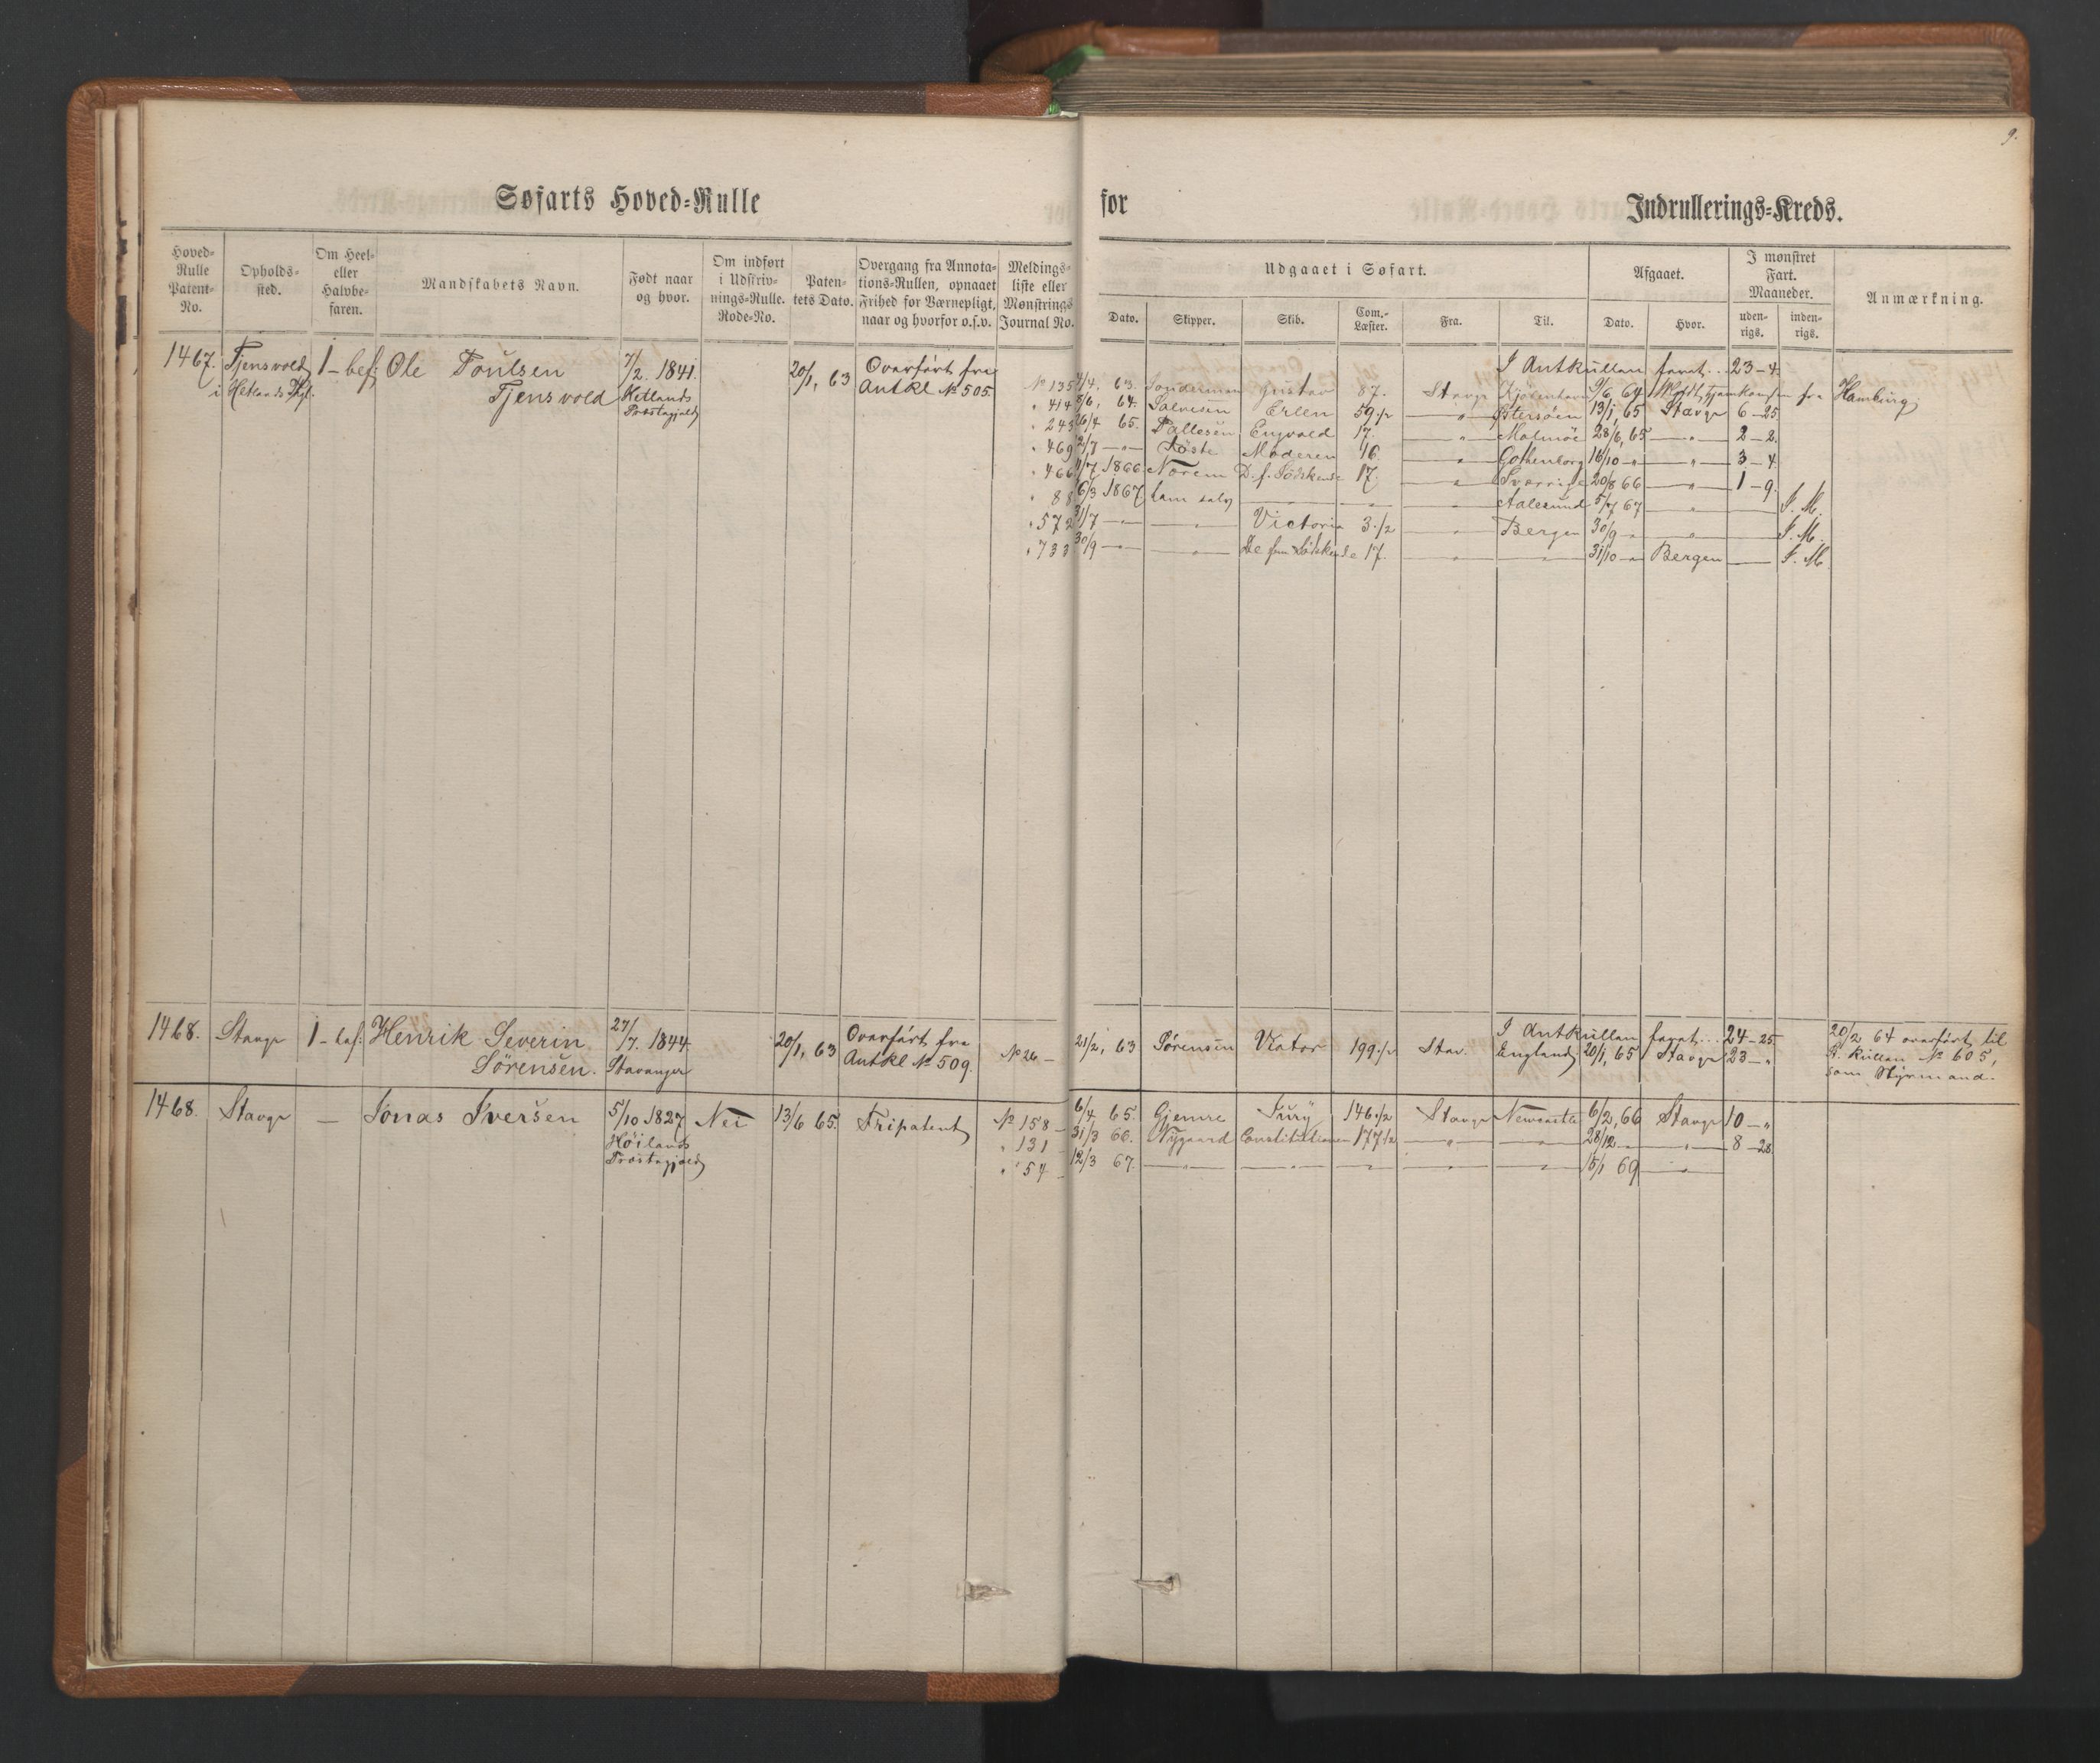 9.
Søfarts Hoved=Rulle for Indrullerings=Kreds.
Hoved=Rulle Patent=No.
Opholds=sted.
Om Heel= eller Halvbe=faren.
Mandskabets Navn.
Født naar og hvor.
Om indført i Udskriv=nings=Rulle. Rode=No.
Paten=tets Dato.
Overgang fra Annota=tions=Rullen, opnaaet Frihed for Værnepligt, naar og hvorfor o.s.v.
Meldings=liste eller Mønstrings Journal No.
Udgaaet i Søfart.
Dato. Skipper. Skib. Com.=Læster. Fra. Til.
Afgaaet.
Dato. Hvor.
I mønstret Fart. Maaneder.
uden=rigs. inden=rigs.
Anmærkning.
1467. Tjensvold 1 - bef: Ole Poulsen 7/2. 1841. 20/1, 63 Overført fra
i Hetlands Pgl. Tjensvold Hetlands Antkl № 505.
Præstegjeld
I Antkullen faret... 23-4.
№ 135 4/4, 63. Gustav 87. Stavgr Kjøbenhavn 9/6, 64 fra Hamburg
" 414 8/6, 64. Salvesen Erlen 59 1/2 — " — Østersøen 13/1, 65 Stavgr 6-25
" 243 26/4 65. Pallesen Engvald 17. — " — Malmöe 28/6, 65 — " — 2-2.
" 469 12/7 — " — Moderen 16 — " — Gothenborg 16/10 " — " — 3-4
" 466 4/7 1866 Norem D. f. Södskende 17. — " — Sverrige 20/8 66 — " — 1-9.
" 88 6/3 1867 ham selv — — — " — Aalesund 5/7 67 — " — I. M.
" 572 31/7 — " — — " — Victoria 3 1/2 — " — Bergen 30/9 " — " — I. M.
" 733 30/9 — " — — " — De fem Södskende 17. — " — — " — 31/10 " Bergen — I. M.
1468. Stavgr 1 - bef: Henrik Severin 27/7. 1844. 20/1, 63 Overført fra
Sörensen. Stavanger Antkl № 509.
I Antkullen faret... 24-25
№ 26 - 21/2, 63 Sörensen Viator 199 1/2 Stav. England 20/1, 65 Stavgr 23-"
20/2 64 overført til
A. Rullen № 605,
som Styrmand.
1468. Stavgr — Jonas Iversen 5/10 1827 Nei 13/6 65. Fripatent
Höilands
Præstegjeld
№ 158 - 6/4 65. Gjemre Fury 146 1/2 Stavgr Newcastle 6/2, 66 Stavgr 10-"
" 131 31/3 66. Nygaard Constitutionen 177 1/2 — " — — " — 28/12 " — " — 8-28
" 54 - 12/3 67. — " — — " — — " — — " — — " — 15/1 69 — " —